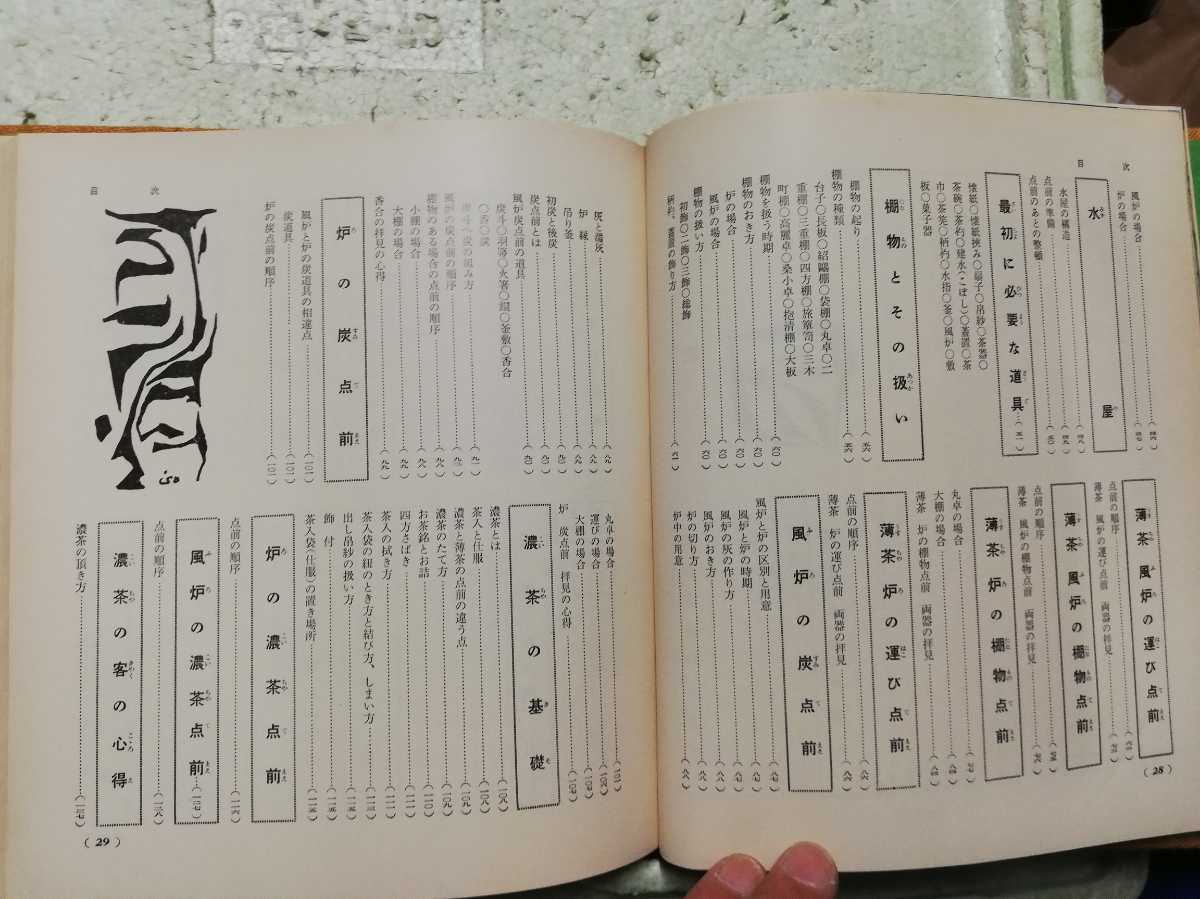 目次
風炉の場合
炉の場合
水屋
水屋の構造
点前の準備
点前のあとの整頓
最初に必要な道具
懐紙○懐紙挟み○扇子○帛紗○茶器○
茶碗○茶杓○建水(こぼし)○蓋置○茶
巾○茶筅○柄杓○水指○釜○風炉○敷
板○菓子器
棚物とその扱い
棚物の起り
棚物の種類
台子○長板○紹鷗棚○袋棚○丸卓○二
重棚○三重棚○四方棚○旅箪笥○三木
町棚○高麗卓○桑小卓○抱清棚○大板
棚物を扱う時期
棚物のおき方
炉の場合
風炉の場合
棚物の扱い方
初飾○二飾○三飾○総飾
柄杓、蓋置の飾り方
薄茶風炉の運び点前
点前の順序
薄茶 風炉の運び点前 両器の拝見
薄茶風炉の棚物点前
点前の順序
薄茶 風炉の棚物点前 両器の拝見
薄茶炉の棚物点前
丸卓の場合
大棚の場合
薄茶 炉の棚物点前 両器の拝見
薄茶炉の運び点前
点前の順序
薄茶 炉の運び点前 両器の拝見
風炉の炭点前
風炉と炉の区別と用意
風炉と炉の時期
風炉の灰の作り方
風炉のおき方
炉の切り方
炉中の用意
(28)
目次
灰と湿灰
炉縁
吊り釜
初炭と後炭
炭点前とは
風炉炭点前の道具
炭斗○羽箒○火箸○鐶○釜敷○香合
○香○炭
炭斗へ炭の組み方
風炉の炭点前の順序
棚物のある場合の点前の順序
小棚の場合
大棚の場合
香合の拝見の心得
炉の炭点前
風炉と炉の炭道具の相違点
炭道具
炉の炭点前の順序
丸卓の場合
運びの場合
大棚の場合
炉 炭点前 拝見の心得
濃茶の基礎
濃茶とは
茶入と仕服
濃茶と薄茶の点前の違う点
濃茶のたて方
お茶銘とお詰
四方さばき
茶入の拭き方
茶入袋の紐のとき方と結び方、しまい方
出し帛紗の扱い方
飾付
茶入袋(仕服)の置き場所
炉の濃茶点前
点前の順序
風炉の濃茶点前
点前の順序
濃茶の客の心得
濃茶の頂き方
(29)